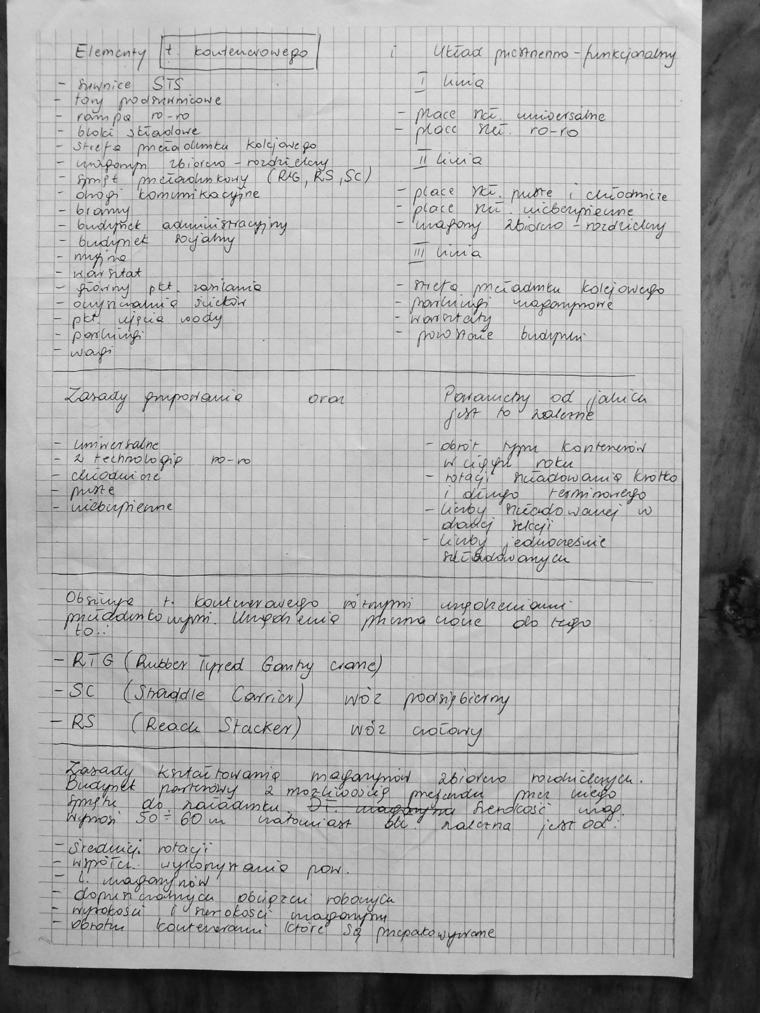 Elementy t. kontenerowego i Układ przestrzenno-funkcjonalny
- suwnice STS
- tory podsuwnicowe
- rampa ro-ro
- bloki składowe
- strefa przeładunku kolejowego
- magazyn zbiorczo-rozdzielczy
- sprzęt przeładunkowy (RTG, RS, SC)
- drogi komunikacyjne
- bramy
- budynek administracyjny
- budynek socjalny
- myjnia
- warsztat
- główny pkt. zasilania
- oczyszczalnia ścieków
- pkt ujęcia wody
- parkingi
- wagi
I linia
- place skł. uniwersalne
- place skł. ro-ro
II linia
- place skł. puste i chłodnicze
- place skł. niebezpieczne
- magazyny zbiorczo-rozdzielczy
III linia
- strefa przeładunku kolejowego
- parkingi magazynowe
- warsztaty
- pozostałe budynki
Zasady grupowania oraz
- uniwersalne
- z technologią ro-ro
- chłodnicze
- puste
- niebezpieczne
Parametry od jakich
jest to zależne
- obrót typu kontenerów
w ciągu roku
- rotacji składowania krótko
i długo terminowego
- liczby składowanej w
danej sekcji
- liczby jednocześnie
składowanych
Obsługa t. kontenerowego różnymi urządzeniami
przeładunkowymi. Urządzenia przeznaczone do tego
to:
- RTG (Rubber Tyred Gantry crane)
- SC (Straddle Carrier) wóz podsiębierny
- RS (Reach Stacker) wóz czołowy
Zasady kształtowania magazynów zbiorczo rozdzielczych.
Budynek parterowy z możliwością przejazdu przez niego
sprzętu do załadunku Dł. magazynu Szerokość mag.
wynosi 50÷60m natomiast dł. zależna jest od:
- średniej rotacji
- współcz. wykorzystania pow.
- l. magazynów
- dopuszczalnych obciążeń roboczych
- wysokości i szerokości magazynu
- obrotu kontenerami które są przepakowywane